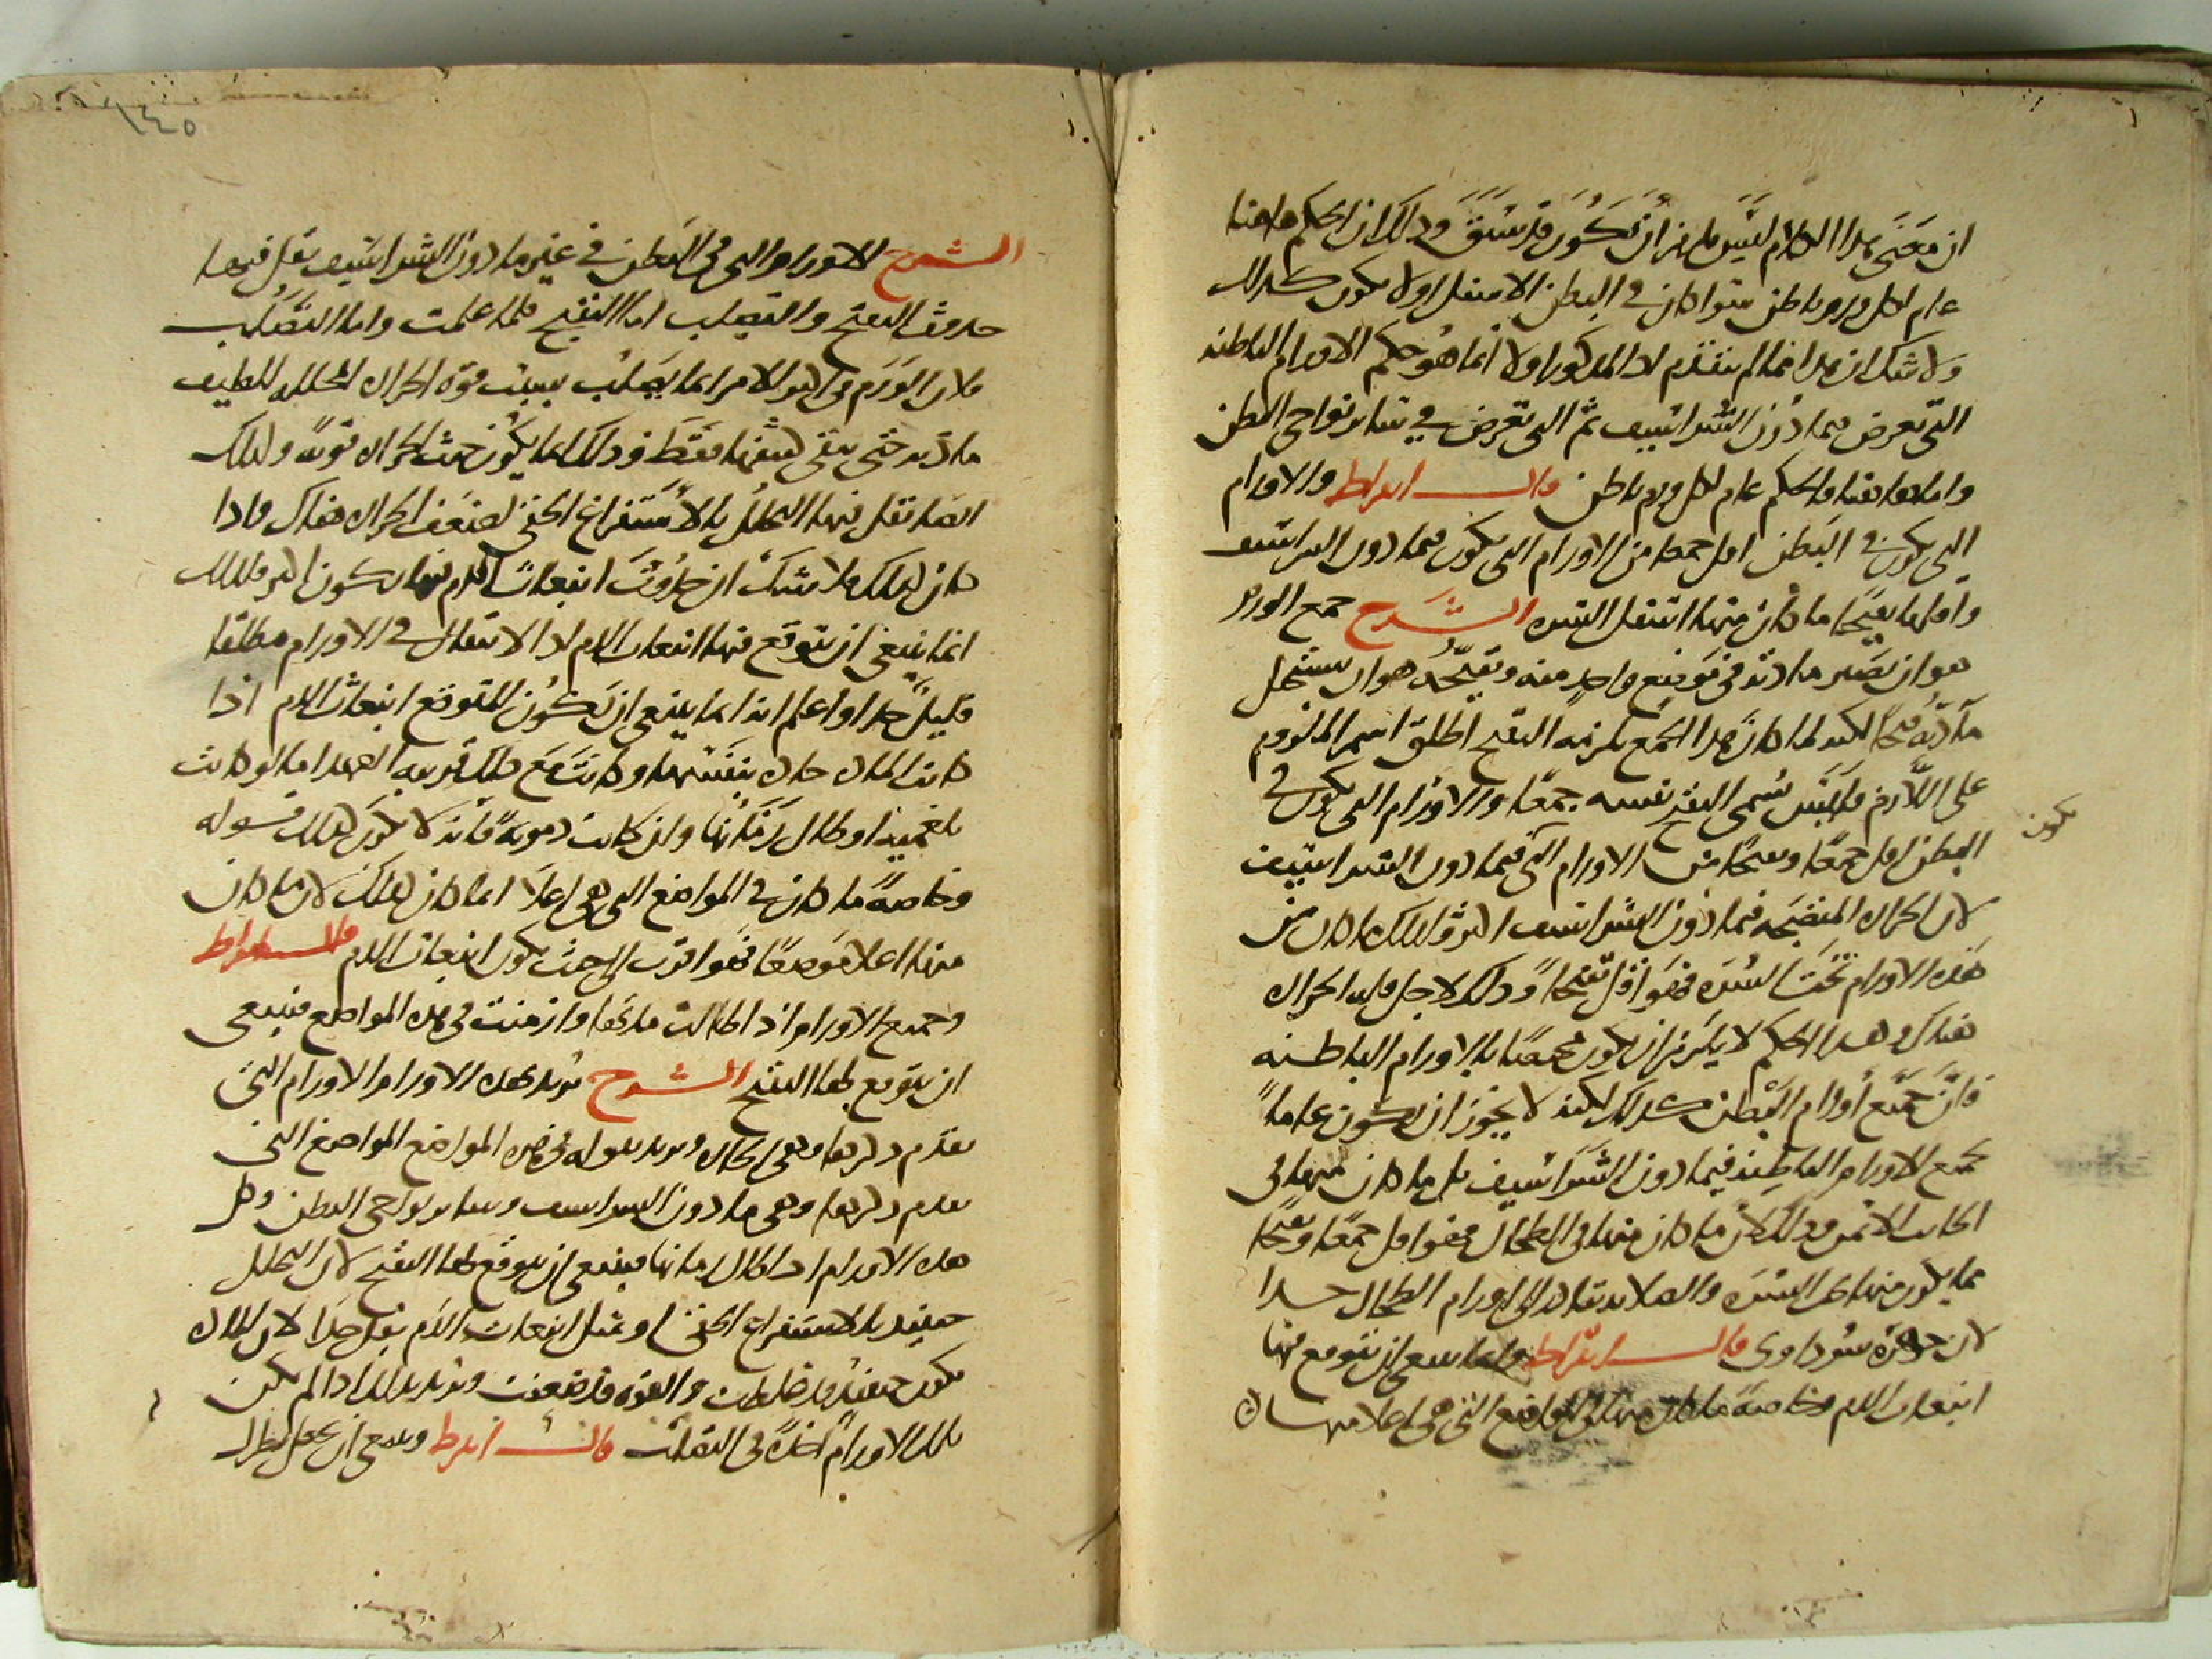 ان معنى هذا الكلام ليس يلزم ان تكون قد سبق وذلك ان الحكم هاهنا
عام لكل ورم باطن سوا كان في البطن الاسفل او لا يكون كذلك
ولا شك ان هذا مما لم يتقدم اذ المذكور اولا انما هو حكم الاورام الباطنه
التي تعرض فيما دون الشراسيف ثم التي تعرض في ساير نواحي البطن
واما هاهنا فالحكم عام لكل ورم باطن قال ابقراط والاورام
التي تكون في البطن اقل جمعا من الاورام التي تكون فيما دون الشراسيف
واقلها تقيحا ما كان منها اسفل السره الشرح جمع الورم
هو ان تصير مادته في موضع واحد منه وتقيحه هو ان يستحيل
مادته قيحا لكنه لما كان هذا الجمع يلزمه التقيح اطلق اسم الملزوم
على اللازم فلهذا سمى التقيح نفسه جمعا والاورام التي تكون في
البطن اقل جمعا وتقيحا من الاورام التي فيما دون الشراسيف
يكون
لان الحراره المنضجه فيما دون الشراسيف اكثر ولذلك ما كان من
هذه الاورام تحت السره فهو اقل تقيحا وذلك لاجل قله الحراره
هناك وهذا الحكم لا يلزم ان يكون مختصا بالاورام الباطنه
فان جميع اورام البطن كذلك لكنه لا يجوز ان يكون عاما
لجميع الاورام الباطنه فيما دون الشراسيف بل ما كان منها في
الجانب الايمن وذلك لان ما كان منها في الطحال فهو اقل جمعا وتقيحا
مما يكون منها تحت السره والصلابه تبادر الى اورام الطحال جدا
لان جوهره سوداوي قال ابقراط وانما ينبغي ان تتوقع منها
انبعاث الدم وخاصة ما كان منها في المواضع التي هي اعلا منها
١٤٥
الشرح الاورام التي في البطن في غير ما دون الشراسيف يقل فيها
حدوث التقيح والتصلب اما التقيح فلما علمت واما التصلب
فلان الورم في اكثر الامر انما يصلب بسبب قوه الحراره المحلله للطيف
مادته حتى يبقى كثيفها فقط وذلك انما يكون حيث الحراره قويه ولذلك
ايضا تقل فيها التحلل بالاستفراغ الخفي لضعف الحراره هناك واذا
كان كذلك فلا شك ان حدوث انبعاث الدم فيها يكون اكثر فلذلك
انما ينبغي ان يتوقع فيها انبعاث الدم اذ الانتقال في الاورام مطلقا
قليل جدا واعلم انه انما ينبغي ان يكون المتوقع انبعاث الدم اذا
كانت الماده حاره بنفسها وكانت مع ذلك قريبه العهد اما لو كانت
بلغميه او طال زمانها وان كانت دمويه فانه لا يكون كذلك قوله
وخاصة ما كان في المواضع التي هي اعلا انما كان كذلك لان ما كان
منها اعلا موضعا فهو اقرب الى حيث يكون انبعاث الدم قال ابقراط
وجميع الاورام اذا طالت مدتها وازمنت في هذه المواضع فينبغي
ان يتوقع لها التقيح الشرح يريد بهذه الاورام الاورام التي
تقدم ذكرها وهي الحاره ويريد بقوله في هذه المواضع المواضع التي
تقدم ذكرها وهي ما دون الشراسيف وساير نواحي البطن وكل
هذه الاورام اذا طال زمانها فينبغي ان يتوقع لها التقيح لان التحلل
حينيذ بالاستفراغ الخفي او بمثل انبعاث الدم يقل جدا لان الماده
تكون حينيذ قد غلظت والقوه قد ضعفت ويريد بذلك اذا لم يكن
تلك الاورام اخذه في التصلب قال ابقراط وينبغي ان يجعل نظرك